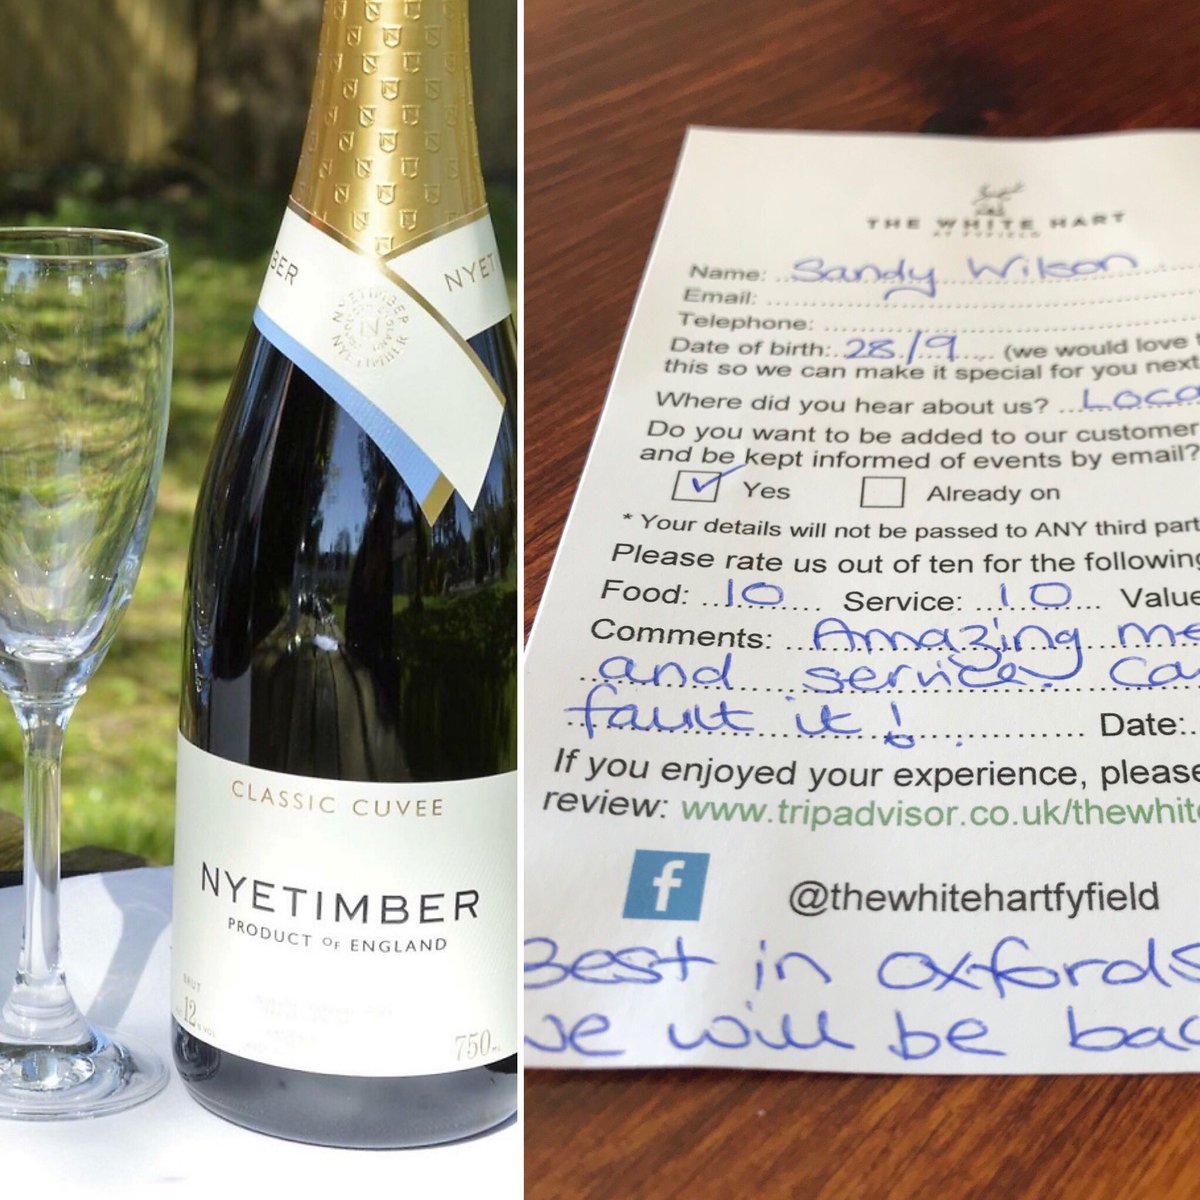 BER
NYET
NYETIMBER
N
NYETIMBER
CLASSIC CUVEE
NYETIMBER
PRODUCT OF ENGLAND
BRUT
12% VOL
750ML
THE WHITE HART
AT FYFIELD
Name: Sandy Wilson
Email:
Telephone:
Date of birth: 28/9 (we would love
this so we can make it special for you next
Where did you hear about us? Loca
Do you want to be added to our customer
and be kept informed of events by email?
Yes Already on
* Your details will not be passed to ANY third part
Please rate us out of ten for the following
Food: 10 Service: 10 Value
Comments: Amazing me
and service. Ca
fault it! Date:
If you enjoyed your experience, please
review: www.tripadvisor.co.uk/thewhite
f @thewhitehartfyfield
Best in oxfords
we will be bac